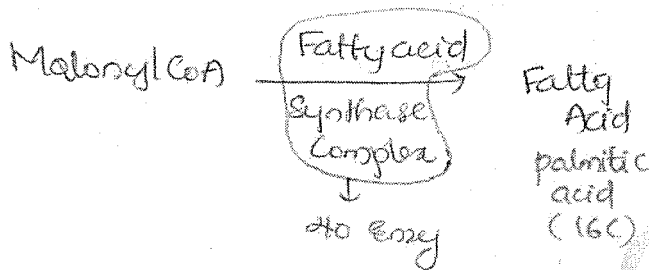 Malonyl CoA
Fatty acid
Synthase
Complex
Fatty
Acid
palmitic
acid
(16C)
Enzy